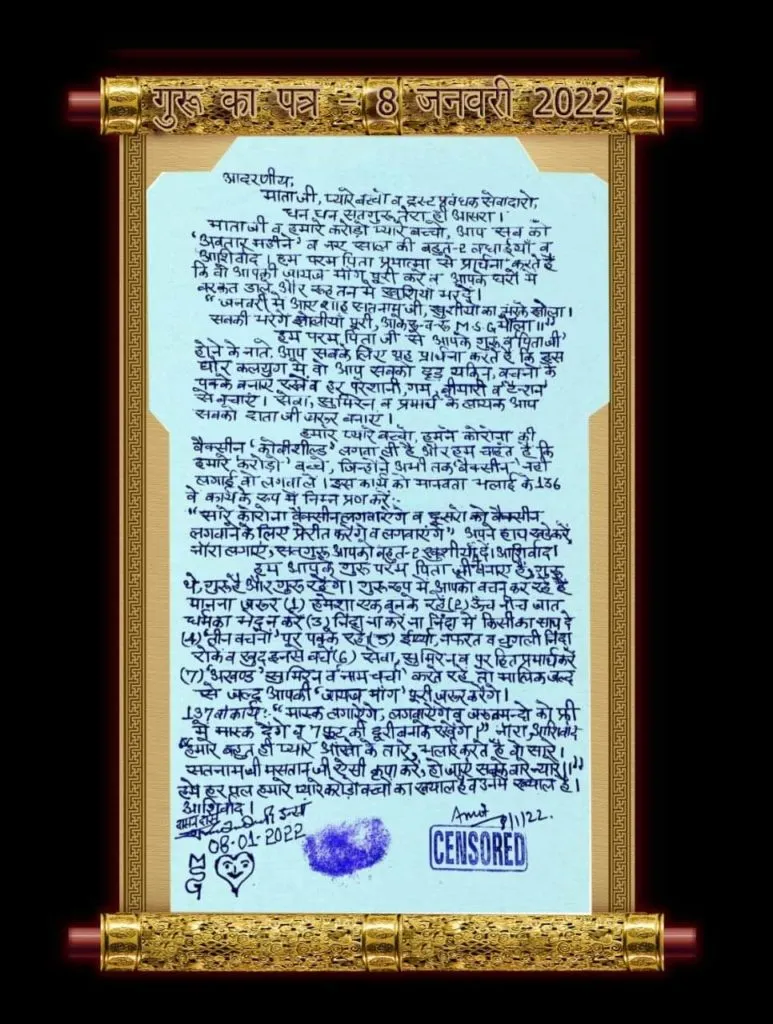 गुरू का पत्र - 8 जनवरी 2022
आदरणीय,
माताजी, प्यारे बच्चो व ट्रस्ट प्रबंधक सेवादारो,
धन धन सतगुरू तेरा ही आसरा।
माताजी व हमारे करोड़ो प्यारे बच्चो, आप सब को
'अवतार महीने' व नए साल की बहुत-2 बधाईयाँ व
आशिर्वाद। हम परम पिता प्रमात्मा से प्रार्थना करते हैं
कि वो आपकी जायज मांग पूरी करें व आपके घरों में
बरकत डालें और तन में खुशियां भर दें।
"जनवरी में आए शाह सतनाम जी, खुशीयों का भरके झोला।
सबकी भरेंगे झोलीयाँ पूरी, M.S.G मौला।।"
हम परम पिता जी से आपके गुरू व 'पिताजी'
होने के नाते, आप सबके लिए यह प्रार्थना करते हैं कि इस
घोर कलयुग में, वो आप सबको दृढ़ यकिन, वचनों के
पक्के बनाए रखें व हर परेशानी, गम, बीमारी व 'टैन्शन'
से बचाएं। सेवा, सुमिरन व प्रमार्थ के लायक आप
सबको दाता जी जरूर बनाएं।
हमारे प्यारे बच्चो, हमने कोरोना की
वैक्सीन 'कोवीशील्ड' लगवा ली है और हम चाहते हैं कि
हमारे 'करोड़ो' बच्चे, जिन्होंने अभी तक 'वैक्सीन' नहीं
लगाई वो लगवालें। इस कार्य को मानवता भलाई के 136
वें कार्य के रूप में निम्न प्रण करें:-
"सारे कोरोना वैक्सीन लगवाएंगे व दूसरों को वैक्सीन
लगवाने के लिए प्रेरीत करेंगे व लगवाएंगे" अपने हाथ खड़े करें,
नारा लगाएं, सतगुरू आपको बहुत-2 खुशीयाँ दें। आशिर्वाद।
हम आपके गुरू परम पिता जी बनाए हैं, गुरू
थे, गुरू हैं और गुरू रहेंगे। गुरू रूप में आपको वचन कर रहे हैं
मानना जरूर (1) हमेशा एक बनके रहें (2) ऊँच नीच जात
धर्म का भेद न करें (3) निंदा ना करें ना निंदा में किसी का साथ दें
(4) 'तीन वचनों' पर पक्के रहें (5) ईर्ष्या, नफरत व चुगली निंदा
रोकें व खुद इनसे बचें (6) सेवा, सुमिरन व पर हित प्रमार्थ करें
(7) 'अखण्ड' सुमिरन व 'नाम चर्चा' करते रहें तो मालिक जल्द
से जल्द आपकी 'जायज मांग' पूरी जरूर करेंगे।
137 वां कार्य:- "मास्क लगाएंगे, लगवाएंगे व जरूतमन्दो को फ्री
में मास्क देंगे व 7 फुट की दूरी बनाके रखेंगे।" नारा, आशिर्वाद
"हमारे बहुत ही प्यारे आँखों के तारे, भला करते हैं वो सारे।
सतनाम जी मस्तान जी ऐसी कृपा करें, हो जाएं सबके वारे न्यारे।।"
हमें हर पल हमारे प्यारे करोड़ों बच्चों का ख्याल है व उनमें ख्याल है।
आशिर्वाद।
08-01-2022
MSG
Amit
8/1/22.
CENSORED